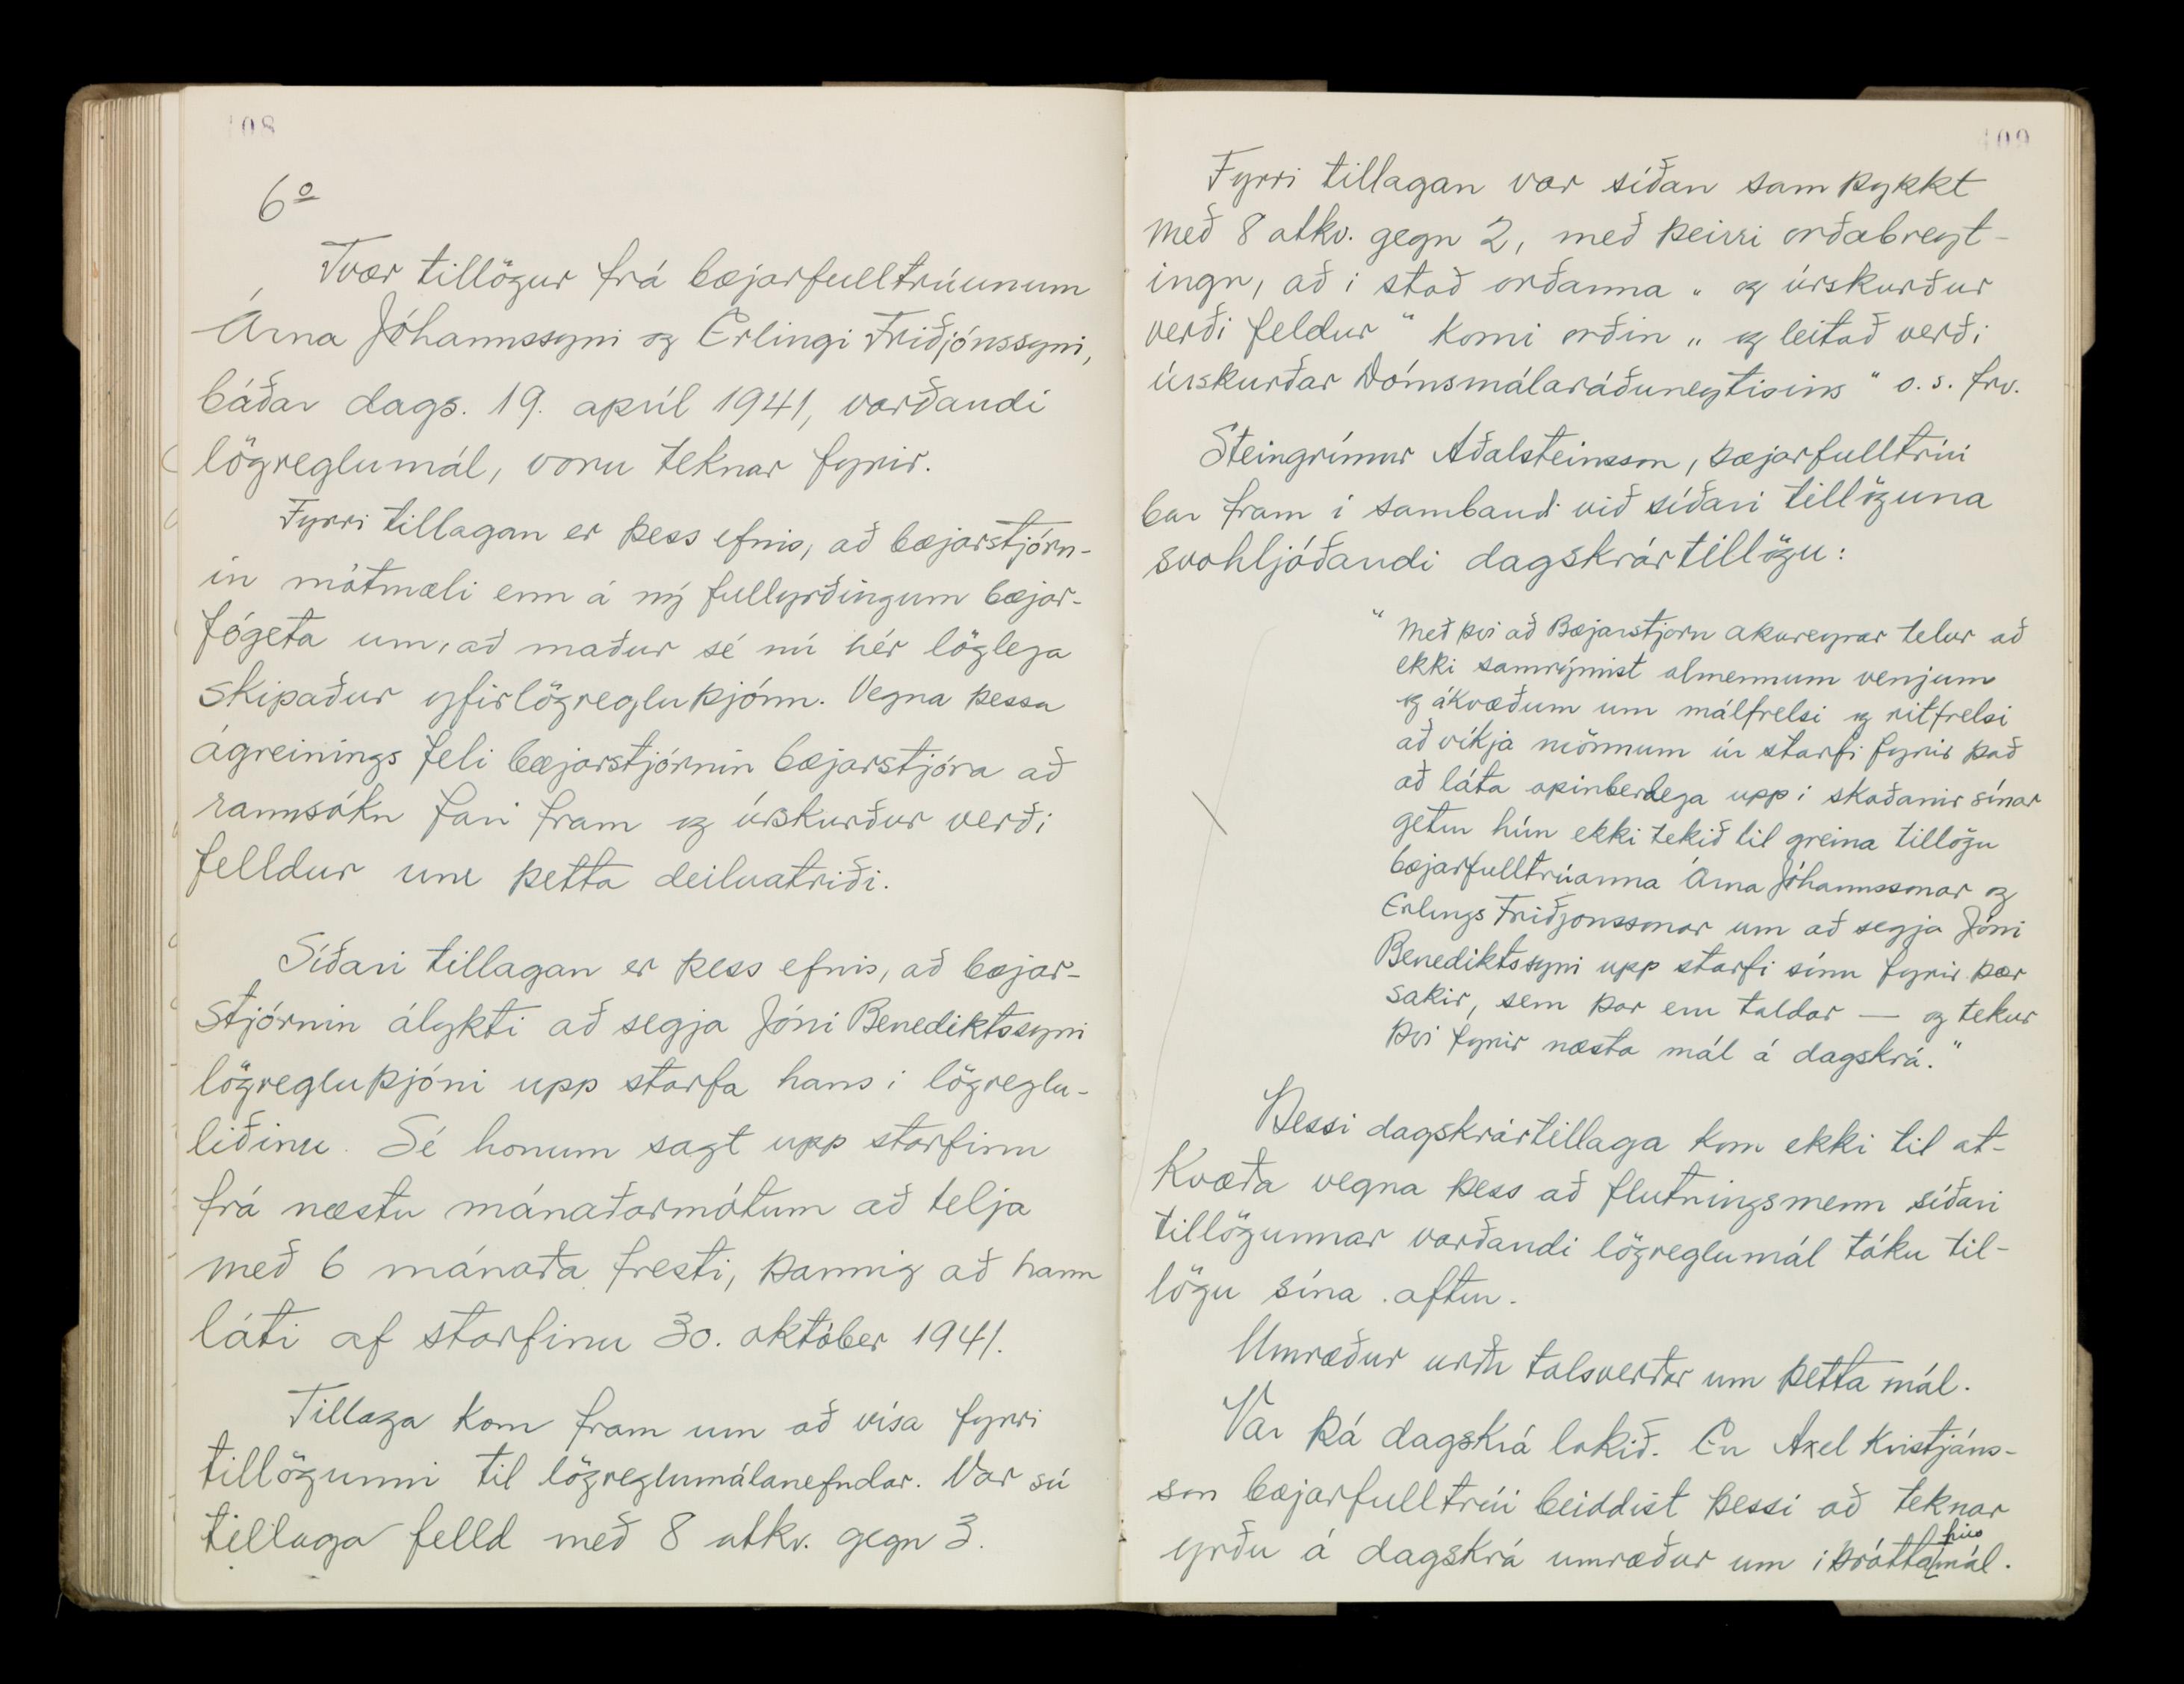 108
6º
Tvær tillögur frá bæjarfulltrúunum
Árna Jóhannssyni og Erlingi Friðjónssyni,
báðar dags. 19. apríl 1941, varðandi
lögreglumál, voru teknar fyrir.
Fyrri tillagan er þess efnis, að bæjarstjórn-
in mótmæli enn á ný fullyrðingum bæjar-
fógeta um, að maður sé nú hér löglega
skipaður yfirlögregluþjónn. Vegna þessa
ágreinings feli bæjarstjórnin bæjarstjóra að
rannsókn fari fram og úrskurður verði
felldur um þetta deiluatriði.
Síðari tillagan er þess efnis, að bæjar-
stjórnin álykti að segja Jóni Benediktssyni
lögregluþjóni upp starfa hans i lögreglu-
liðinu. Sé honum sagt upp starfinu
frá næstu mánaðarmótum að telja
með 6 mánaða fresti, þannig að hann
láti af starfinu 30. október 1941.
Tillaga kom fram um að vísa fyrri
tillögunni til lögreglumálanefndar. Var sú
tillaga felld með 8 atkv. gegn 3.
109
Fyrri tillagan var síðan samþykkt
með 8 atkv. gegn 2, með þeirri orðabreyt-
ingu, að i stað orðanna „ og úrskurður
verði feldur “ komi orðin „ og leitað verði
úrskurðar Dómsmálaráðuneytisins “ o. s. frv.
Steingrímur Aðalsteinsson, bæjarfulltrúi
bar fram i sambandi við síðari tillöguna
svohljóðandi dagskrártillögu:
“ Með þvi að Bæjarstjorn akureyrar telur að
ekki samrýmist almennum venjum
og ákvæðum um málfrelsi og ritfrelsi
að víkja mönnum úr starfi fyrir það
að láta opinberlega upp i skoðanir sínar
getur hún ekki tekið til greina tillögu
bæjarfulltrúanna Árna Jóhannssonar og
Erlings Friðjonssonar um að segja Jóni
Benediktssyni upp starfi sínu fyrir þær
sakir, sem þar eru taldar — og tekur
þvi fyrir næsta mál á dagskrá.“
Þessi dagskrártillaga kom ekki til at-
kvæða vegna þess að flutningsmenn síðari
tillögunnar varðandi lögreglumál tóku til-
lögu sína aftur.
Umræður urðu talsverðar um þetta mál.
Var þá dagskrá lokið. En Axel Kristjáns-
son bæjarfulltrúi beiddist þessi að teknar
yrðu á dagskrá umræður um iþróttahúsmál.